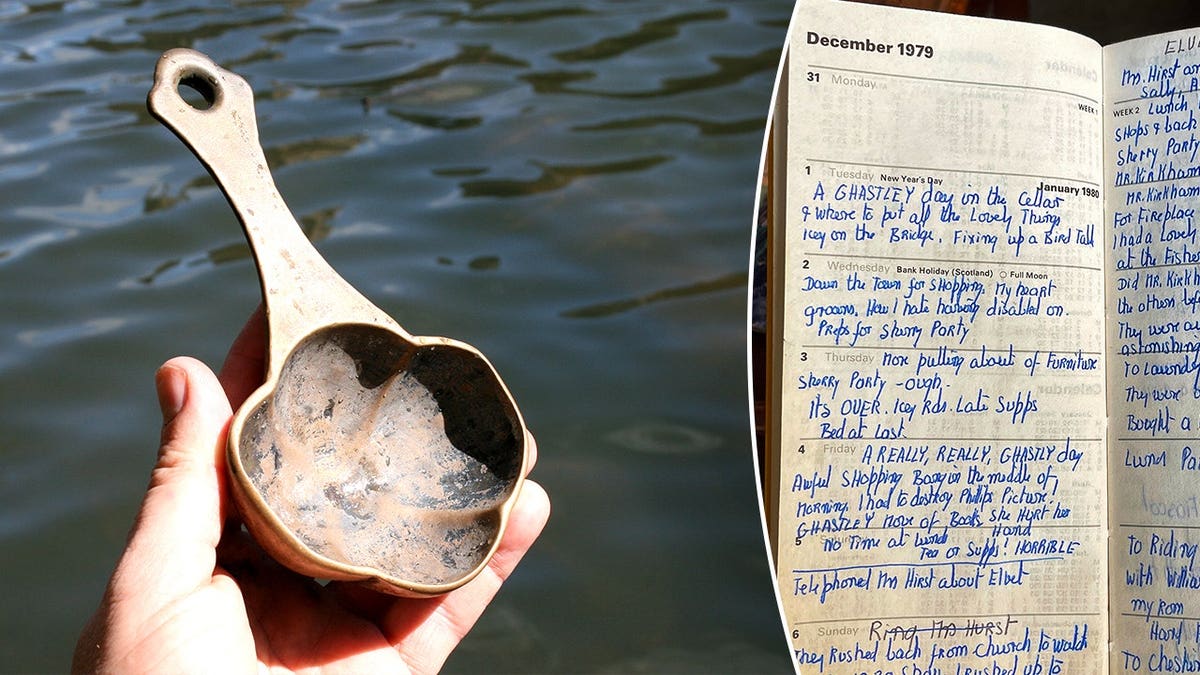 December 1979
31 Monday
WEEK 1
1 Tuesday New Year's Day
January 1980
A GHASTLEY day in the Cellar
& where to put all the Lovely Thing
Icey on the Bridge. Fixing up a Bird Tabl
2 Wednesday Bank Holiday (Scotland) Full Moon
Down the Town for SHopping. My heart
groans. How I hate having disabled on.
Preps for Sherry Party
3 Thursday More pulling about of Furniture
Sherry Party - ough.
It's OVER. Icey Rds. Late Supps
Bed at Last
4 Friday A REALLY, REALLY, GHASTLY day
Awful SHopping Bang in the middle of
Morning. I had to destroy Philips Picture!
GHASTLEY More of Boots. She HURT her
Hand
5
No Time at Lunch
Tea or Supps! HORRIBLE
Telephoned Mrs Hirst about Elvet
6 Sunday Ring Mrs HURST
They Rushed back from Church to Watch
rushed up to
Calendar
Mrs. Hirst an
Sally,
WEEK 2 Lunch
SHops & back
Sherry Party
Mr. KirKham
Mr. KirKham
For Fireplac
I had a Lovely
at the Fishe
Did Mr. Kirkh
the others lef
They were a
astonishing
To Laund
They were
Bought a
Lund Pa
To Riding
with Willia
my Rom
Hard
To Chesh